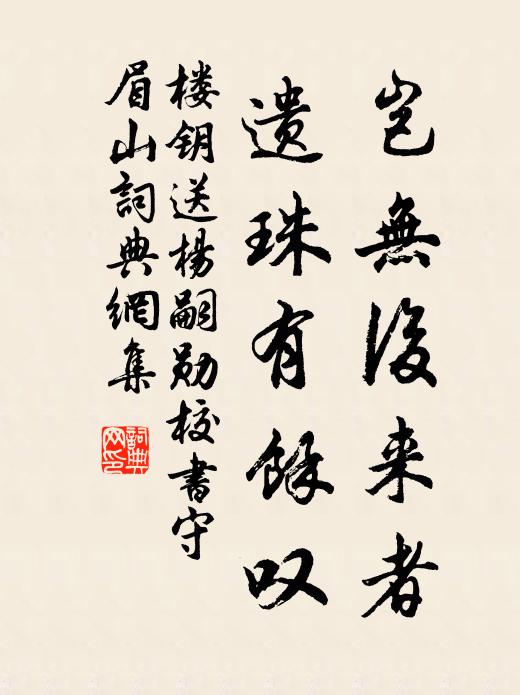 岂無後来者
遗珠有餘叹
楼钥送杨嗣勋校書守
眉山詞典網集
詞典
网印